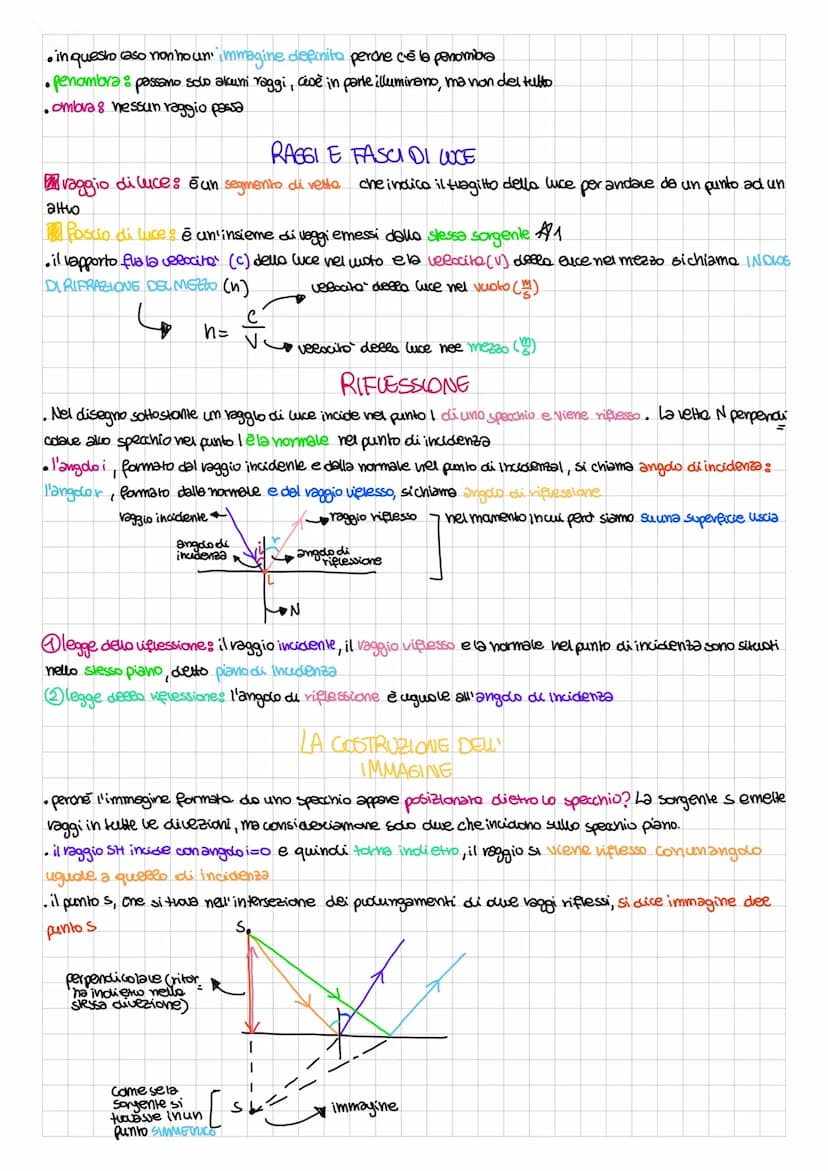 . in questo caso non ho un' immagine definita perché c'è la penombra
. penombra: passano solo alcuni raggi, cioè in parte illuminano, ma non del tutto
. ombra: nessun raggio passa
RAGGI E FASCI DI LUCE
raggio di luce: è un segmento di retta che indica il tragitto della luce per andare da un punto ad un
altro
Fascio di luce: è un'insieme di raggi emessi dalla stessa sorgente
. il rapporto fra la velocità (c) della luce nel vuoto e la velocità (v) della luce nel mezzo si chiama INDICE
DI RIFRAZIONE DEL MEZZO (n)
velocità della luce nel vuoto (m/s)
n = c/v
velocità della luce nel mezzo (m/s)
RIFLESSIONE
. Nel disegno sottostante un raggio di luce incide nel punto I di uno specchio e viene riflesso. La retta N perpendi
colare allo specchio nel punto I è la normale nel punto di incidenza
. l'angolo i, formato dal raggio incidente e dalla normale nel punto di incidenza, si chiama angolo di incidenza:
l'angolo r, formato dalla normale e dal raggio riflesso, si chiama angolo di riflessione
raggio incidente
raggio riflesso
nel momento in cui però siamo su una superficie liscia
angolo di
incidenza
i
r
angolo di
riflessione
I
N
1 legge della riflessione: il raggio incidente, il raggio riflesso e la normale nel punto di incidenza sono situati
nello stesso piano, detto piano di incidenza
2 legge della riflessione: l'angolo di riflessione è uguale all'angolo di incidenza
LA COSTRUZIONE DELL'
IMMAGINE
. perché l'immagine formata da uno specchio appare posizionata dietro lo specchio? La sorgente S emette
raggi in tutte le direzioni, ma consideriamone solo due che incidono sullo specchio piano.
. il raggio SH incide con angolo i=0 e quindi torna indietro, il raggio SI viene riflesso con un angolo
uguale a quello di incidenza
. il punto S, che si trova nell'intersezione dei prolungamenti di due raggi riflessi, si dice immagine del
punto S
S
perpendicolare (ritor
na indietro nella
stessa direzione)
come se la
sorgente si
trovasse in un
punto SIMMETRICO
S
immagine